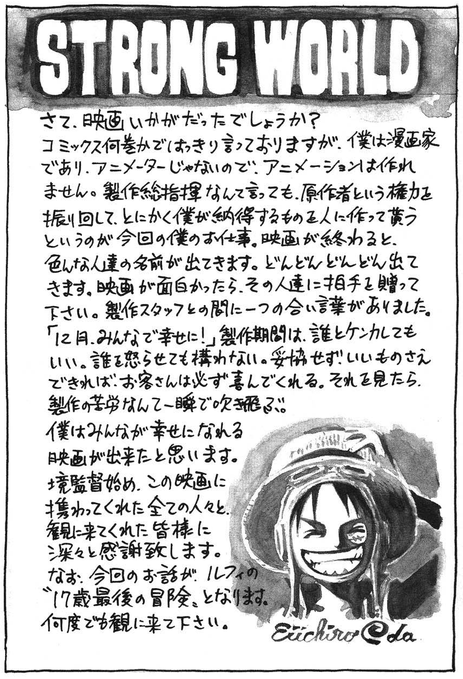 STRONG WORLD
さて、映画いかがだったでしょうか?
コミックス何巻かではっきり言っておりますが、僕は漫画家
であり、アニメーターじゃないので、アニメーションは作れ
ません。製作総指揮なんて言っても、原作者という権力を
振り回して、とにかく僕が納得するものを人に作って貰う
というのが今回の僕のお仕事。映画が終わると、
色んな人達の名前が出てきます。どんどんどんどん出て
きます。映画が面白かったら、その人達に拍手を贈って
下さい。製作スタッフとの間に一つの合い言葉がありました。
「12月、みんなで幸せに!」製作期間は、誰とケンカしても
いい。誰を怒らせても構わない。妥協せずいいものさえ
できれば、お客さんは必ず喜んでくれる。それを見たら、
製作の苦労なんて一瞬で吹き飛ぶ。
僕はみんなが幸せになれる
映画が出来たと思います。
境監督始め、この映画に
携わってくれた全ての人々と、
観に来てくれた皆様に
深々と感謝致します。
なお、今回のお話が、ルフィの
〝17歳最後の冒険〟となります。
何度でも観に来て下さい。
Eiichiro Oda